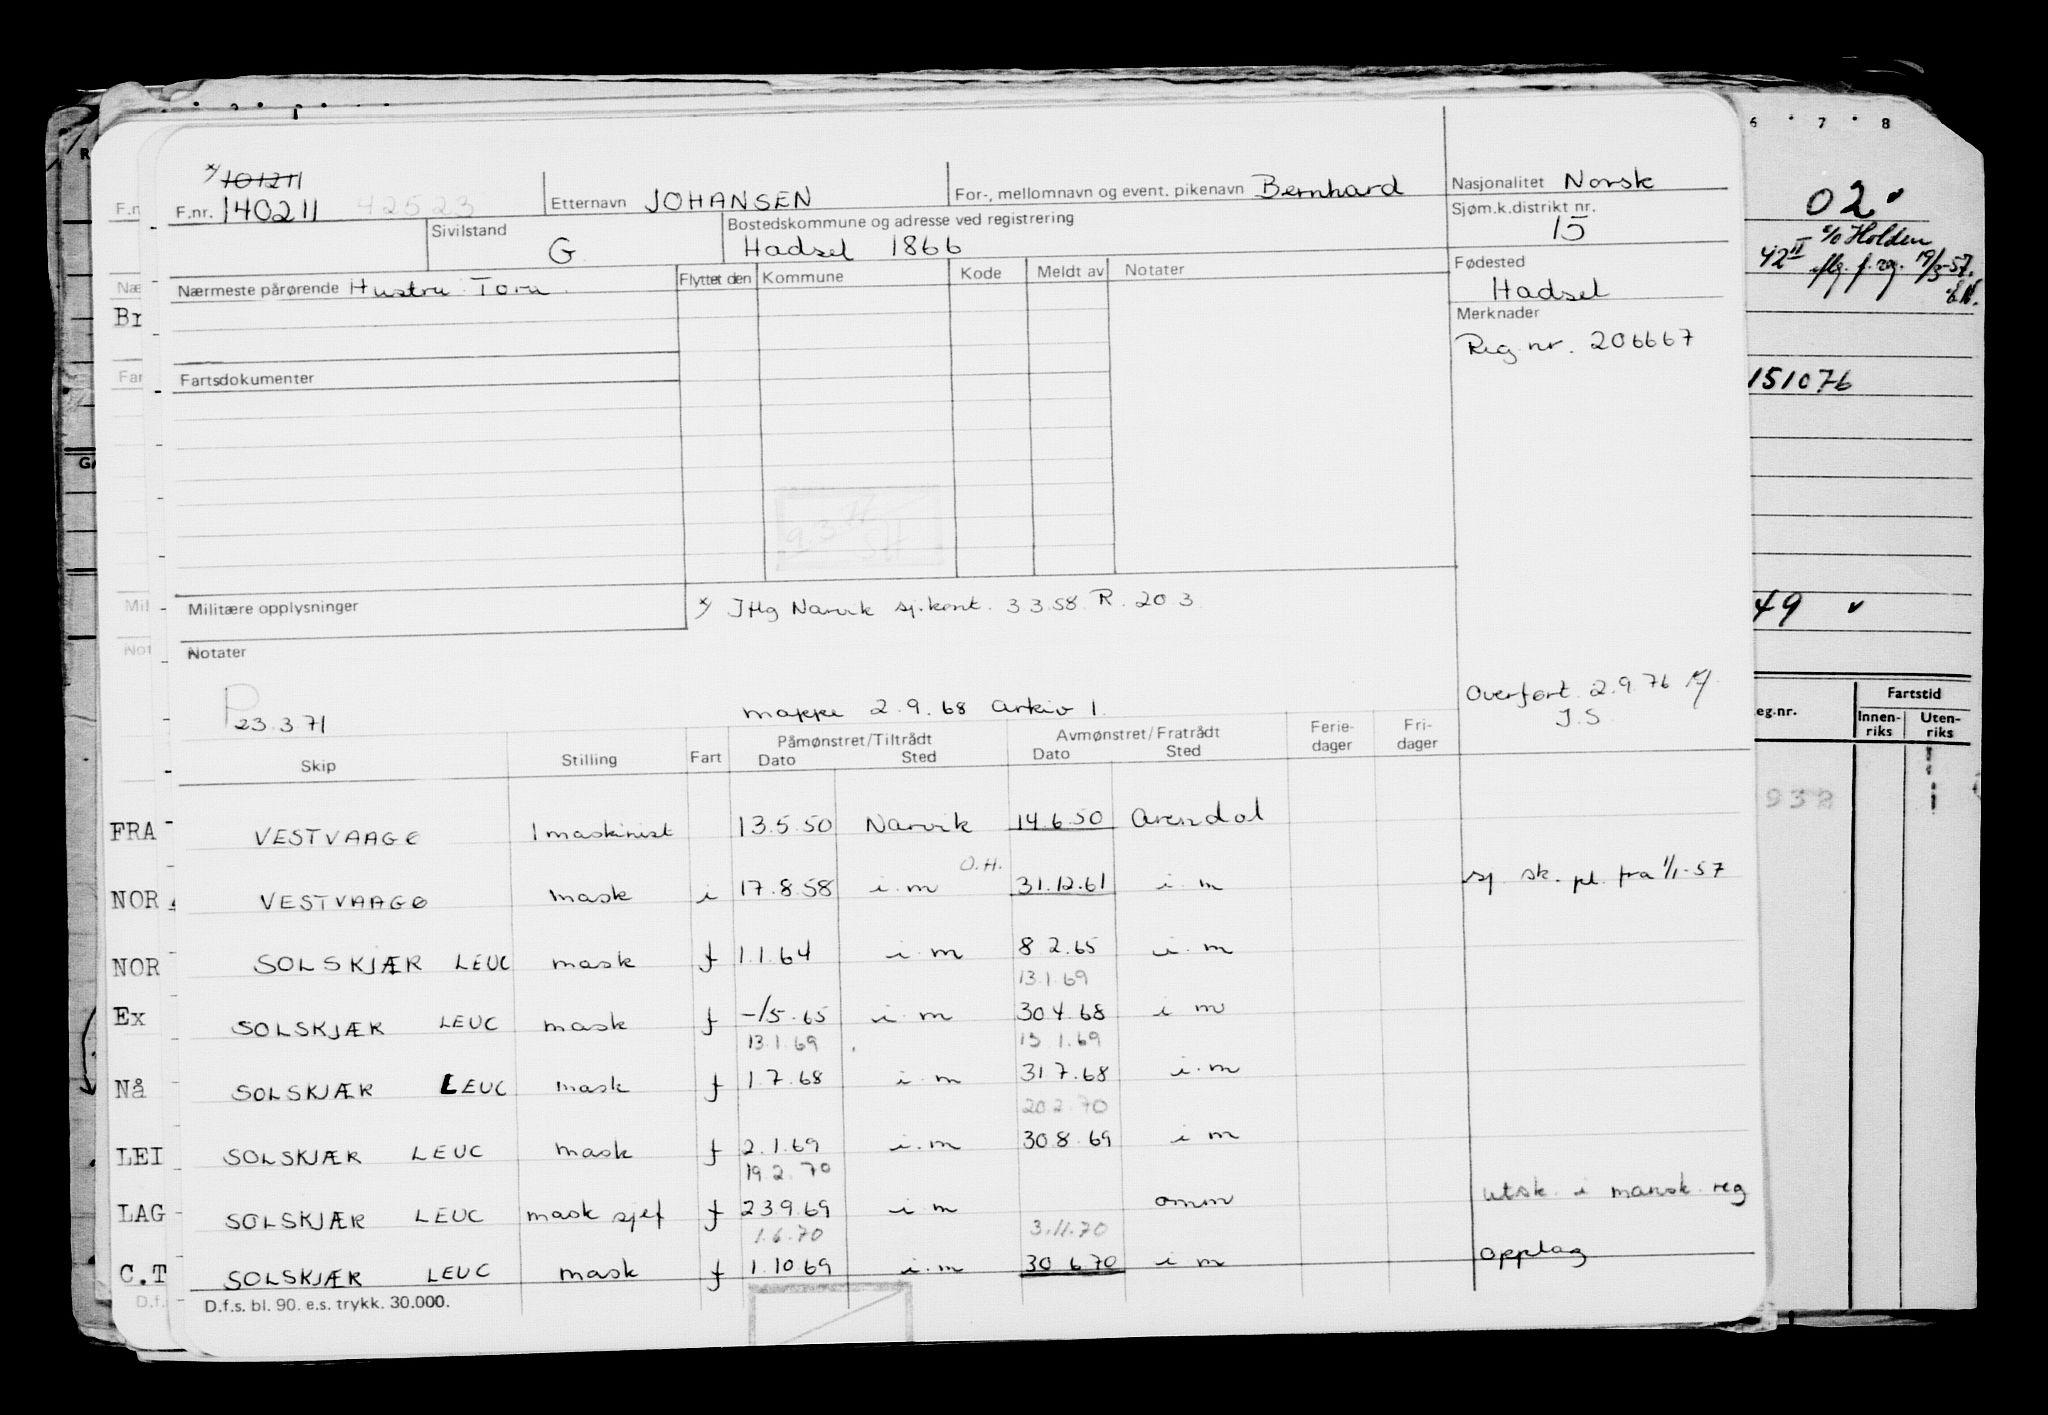 */ 101211
F.nr. 140211 42523
Etternavn JOHANSEN
For-, mellomnavn og event. pikenavn Bernhard
Nasjonalitet Norsk
Sivilstand G
Bostedskommune og adresse ved registrering
Hadsel 1866
Sjøm.k.distrikt nr.
15
Nærmeste pårørende Hustru: Tora
Flyttet den Kommune Kode Meldt av Notater
Fødested
Hadsel
Merknader
Reg. nr. 206667
Fartsdokumenter
Militære opplysninger
*/ JHg Narvik sj.kont. 3.3.58. R. 203
Notater
P
23.3.71
mappe 2.9.68 Arkiv 1.
Overført 2.9.76
J.S.
Skip Stilling Fart Påmønstret/Tiltrådt Dato Sted Avmønstret/Fratrådt Dato Sted Ferie-dager Fri-dager
VESTVAAGØ 1 maskinist 13.5.50 Narvik 14.6.50 Arendal
O.H.
VESTVAAGØ mask i 17.8.58 i.m 31.12.61 i.m sj. sk. pl. fra 1/1-57
SOLSKJÆR LEUC mask f 1.1.64 i.m 8.2.65 i.m
13.1.69
SOLSKJÆR LEUC mask f -/5.65 i.m 30.4.68 i m
13.1.69 13 1.69
SOLSKJÆR LEUC mask f 1.7.68 i.m 31.7.68 i.m
20.2.70
SOLSKJÆR LEUC mask f 2.1.69 i.m 30.8.69 i m
19.2.70
SOLSKJÆR LEUC mask sjef f 23.9.69 i.m omm utsk. i mansk. reg
1.6.70 3.11.70
SOLSKJÆR LEUC mask f 1.10.69 i.m 30.6.70 i m opplag
D.f.s. bl. 90. e.s. trykk. 30.000.
F.n
Næ
Br
Far
Mil
Not
FRA
NOR
NOR
Ex
Nå
LEI
LAG
C.T
D.f.
6 7 8
02
c/o Holden
42 II
flg. f. reg. 19/3-57.
E.N.
151076
49
eg.nr.
Fartstid
Innen-riks Uten-riks
938